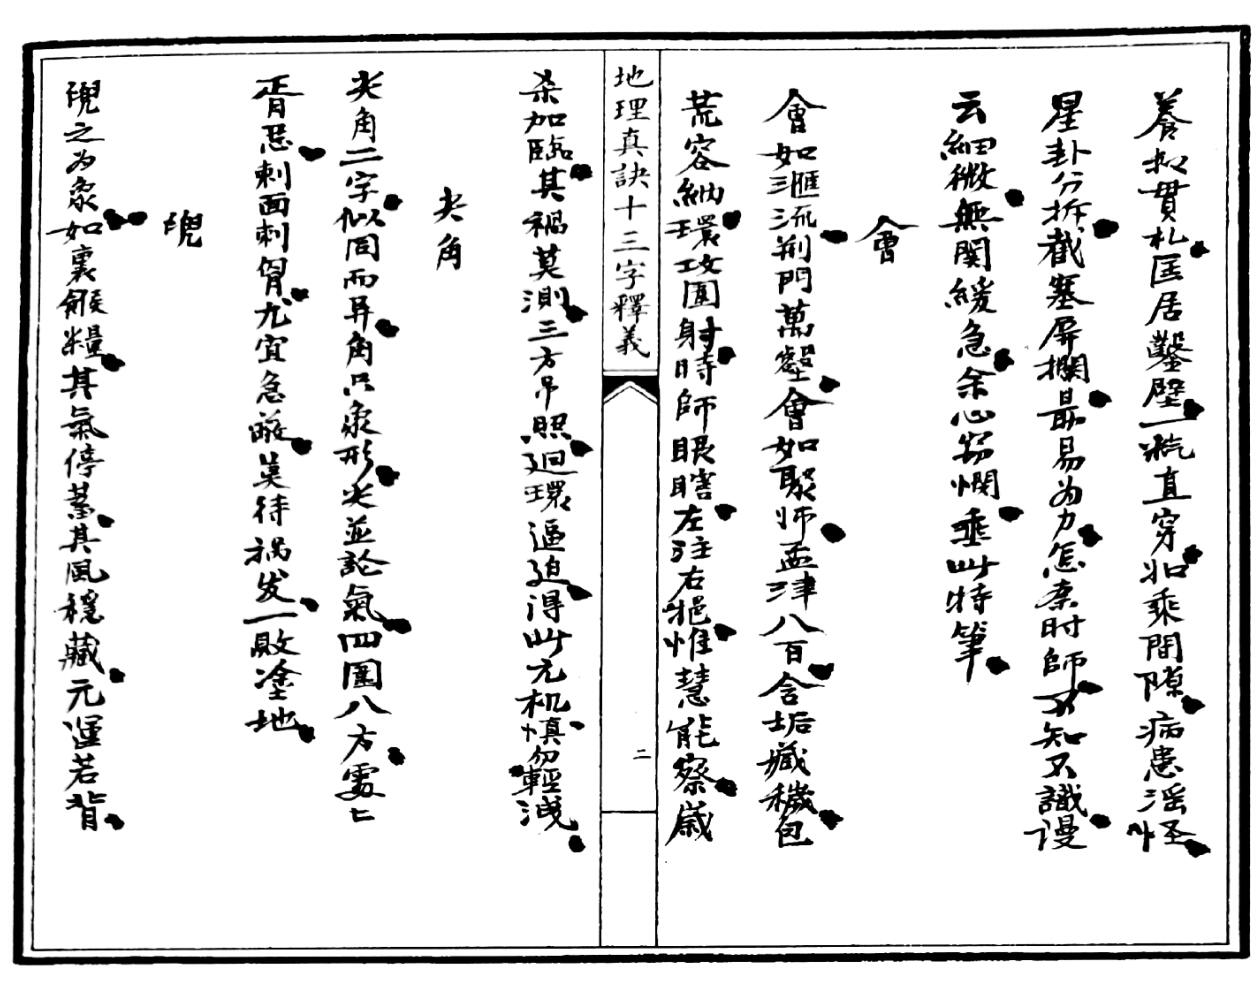 養如貫札匡居鑿壁一㲸直穿如乘間隙病患滛怪
星卦分拆截塞屏攔最易为力怎奈时師不知不識谩
云細微無関緩急余心窃憫垂此特筆
會
會如滙流荆門萬壑會如聚师孟津八百含垢藏穢包
荒容納環攻圓射時師眼瞎左注右挹惟慧能察歲
地理真訣十三字釋義
二
杀加臨其禍莫測三方吊照廻環逼迫得此元机慎勿輕洩
尖角
尖角二字似同而异角只象形尖並論氣四圍八方處七
胥忌刺面刺胷尤宜急避莫待禍发一敗塗地
堄
堄之为象如裹餱糧其氣停蓄其風穩藏元運若背